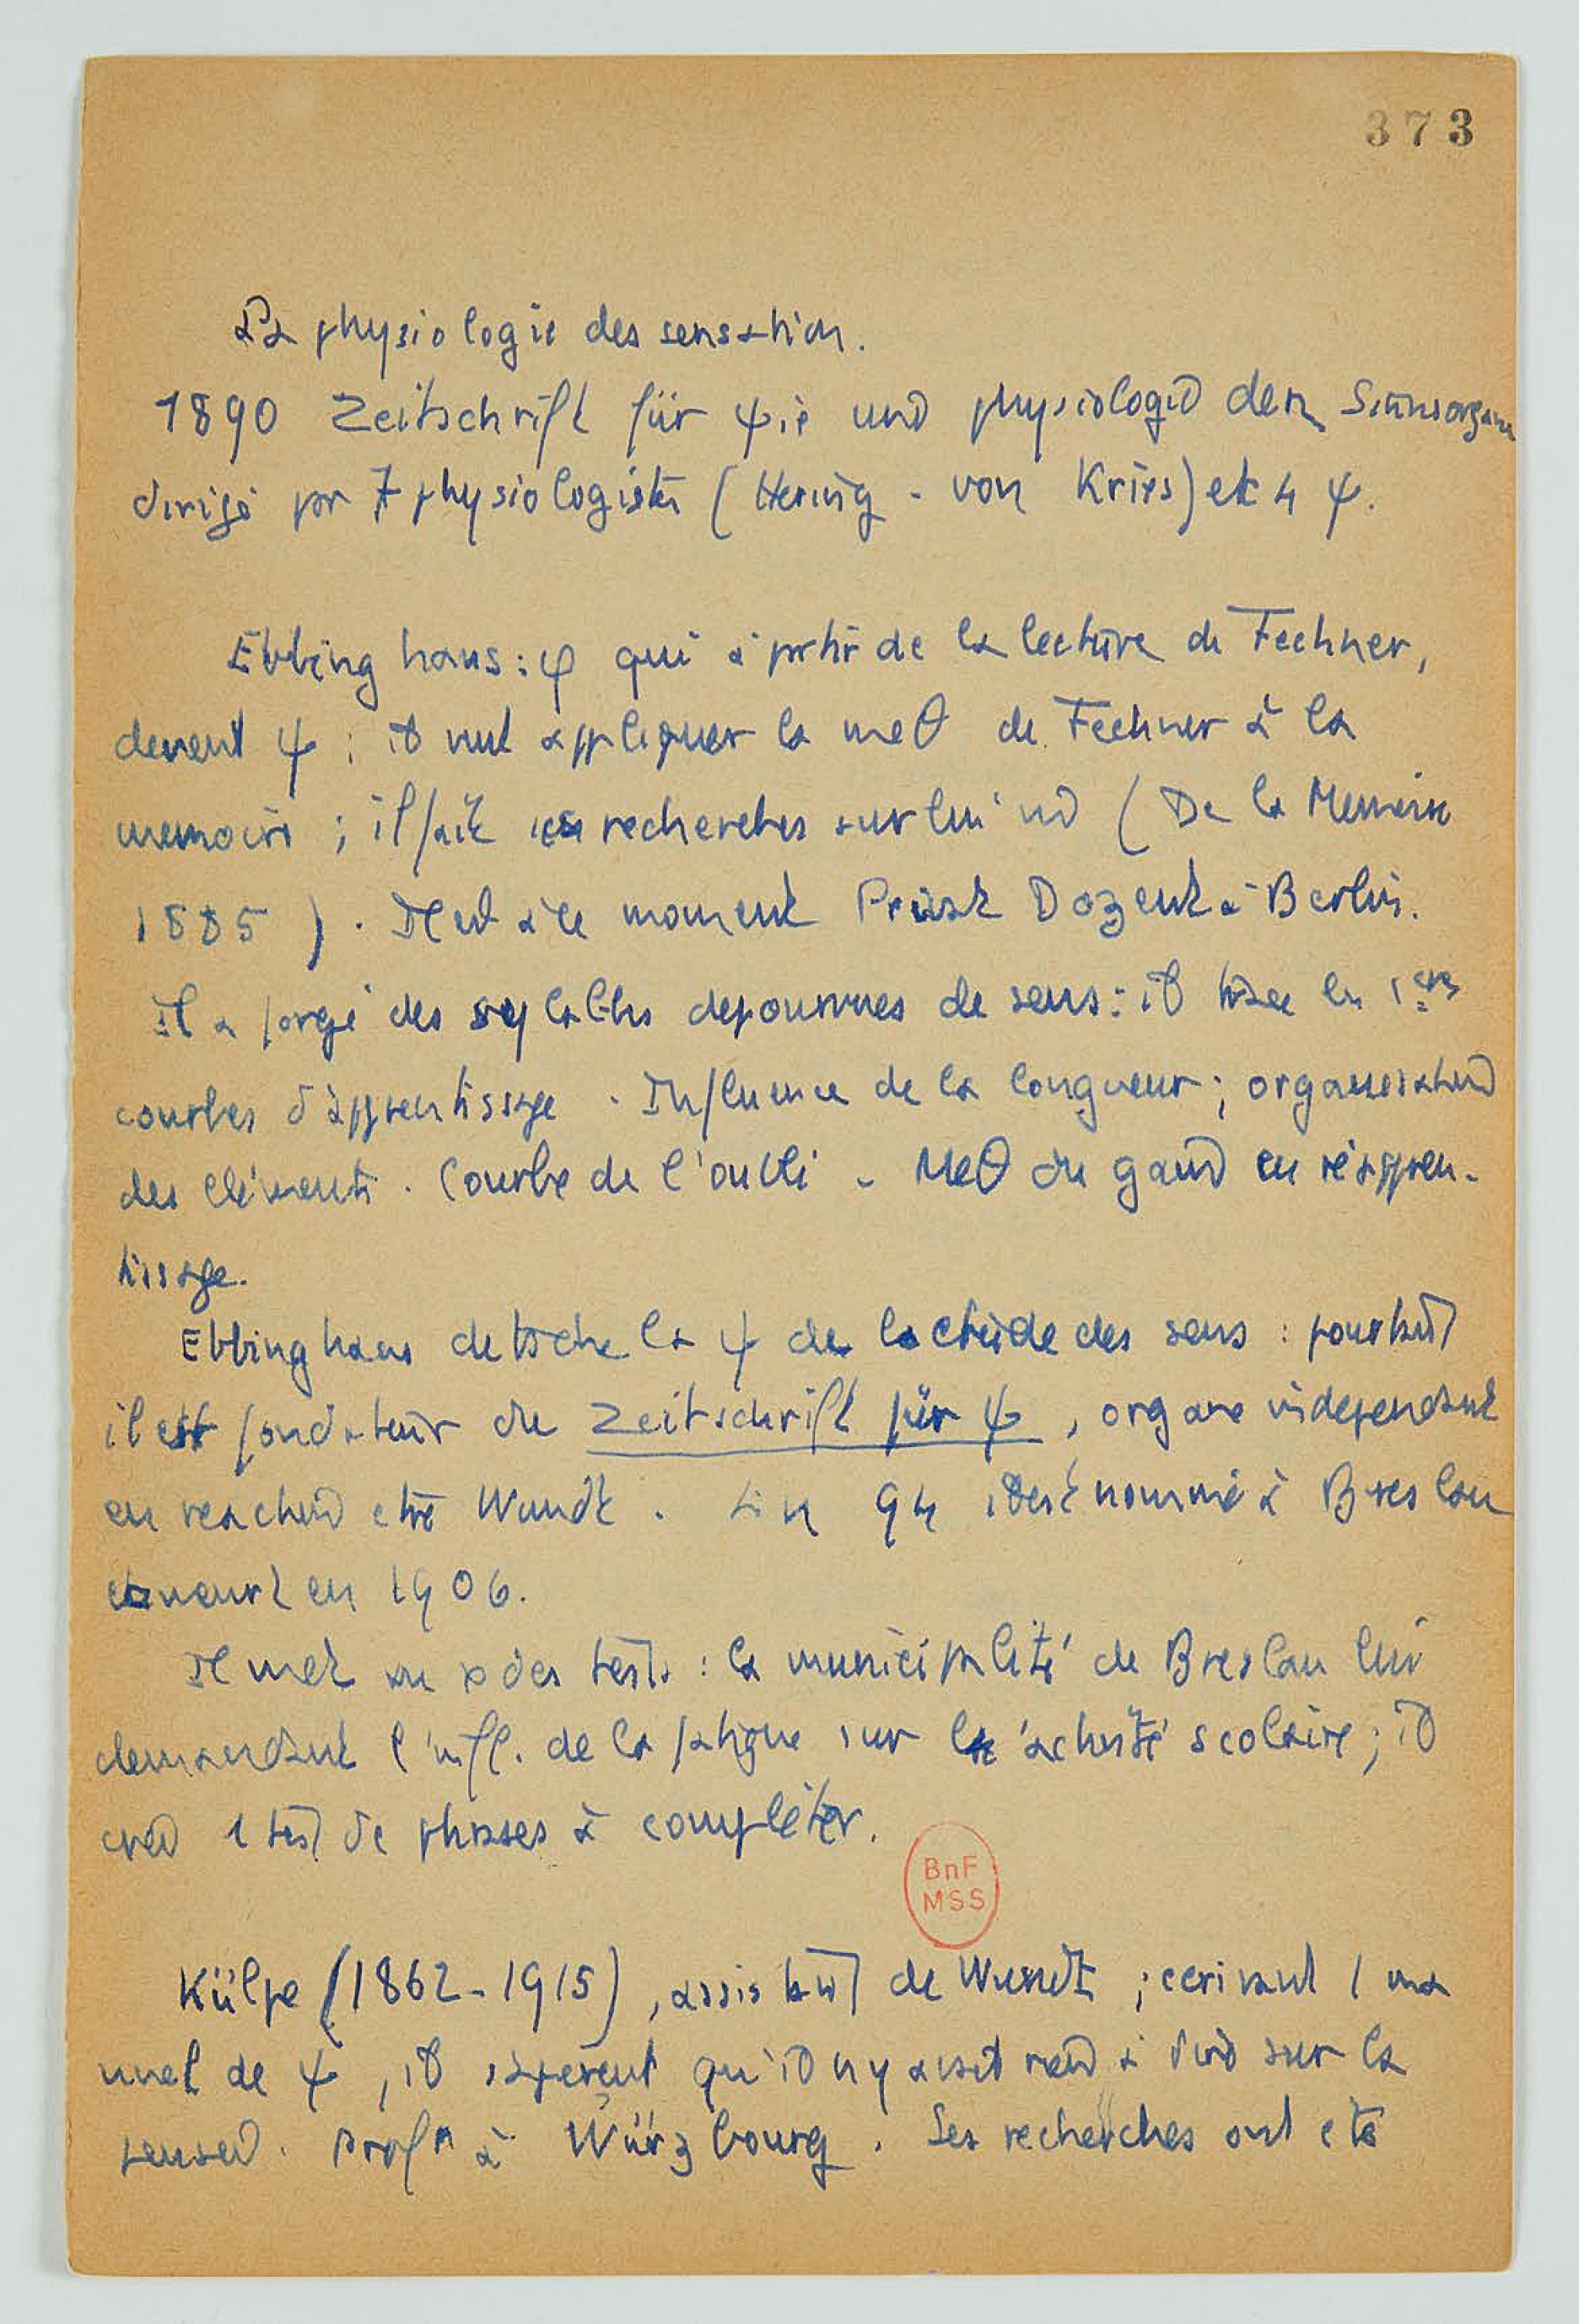 373
La physiologie des sensation.
1890 Zeitschrift für ψie und physiologie der Sinnsorgan
dirigé par 7 physiologistes (Hering - von Kries) et 4 ψ.
Ebbinghaus : φ qui à partir de la lecture de Fechner,
devient ψ ; il veut appliquer la meθ de Fechner à la
memoire ; il fait ses recherches sur lui mê (De la Memoire
1885). Il est à ce moment Privat Dozent à Berlin.
Il a forgé des syllabes depourvues de sens : il trace les 1ères
courbes d'apprentissage. Influence de la longueur ; organisation
des eléments. Courbe de l'oubli - Meθ du gain en réappren-
tissage.
Ebbinghaus detache la ψ de l'etude des sens : pourtant
il est fondateur du Zeitschrift für ψ, organe independant
en reaction ctre Wundt. En 94 il est nommé à Breslau
et meurt en 1906.
Il met au p des tests : la municipalité de Breslau lui
demandant l'infl. de la fatigue sur l'activité scolaire ; il
crée 1 test de phrases à compléter.
BnF
MSS
Külpe (1862-1915), assistant de Wundt ; ecrivant 1 ma
nuel de ψ, il s'aperçut qu'il n'y avait rien à dire sur la
pensée. Profr à Würzbourg. Ses recherches ont eté